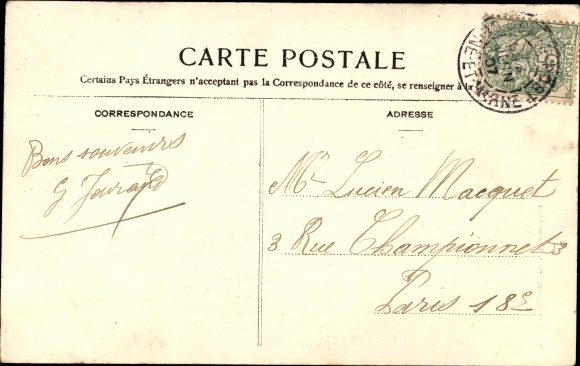 CARTE POSTALE
Certains Pays Étrangers n'acceptant pas la Correspondance de ce côté, se renseigner à la
CORRESPONDANCE
ADRESSE
Bons souvenirs
G
Mr Lucien Macquet
3 Rue Championnet 3
Paris 18e
NE-ET-MARNE
07
POSTES